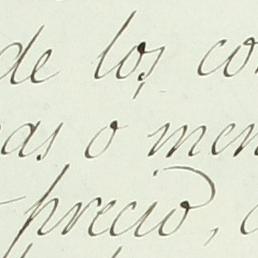 de los con
as o men
precio,